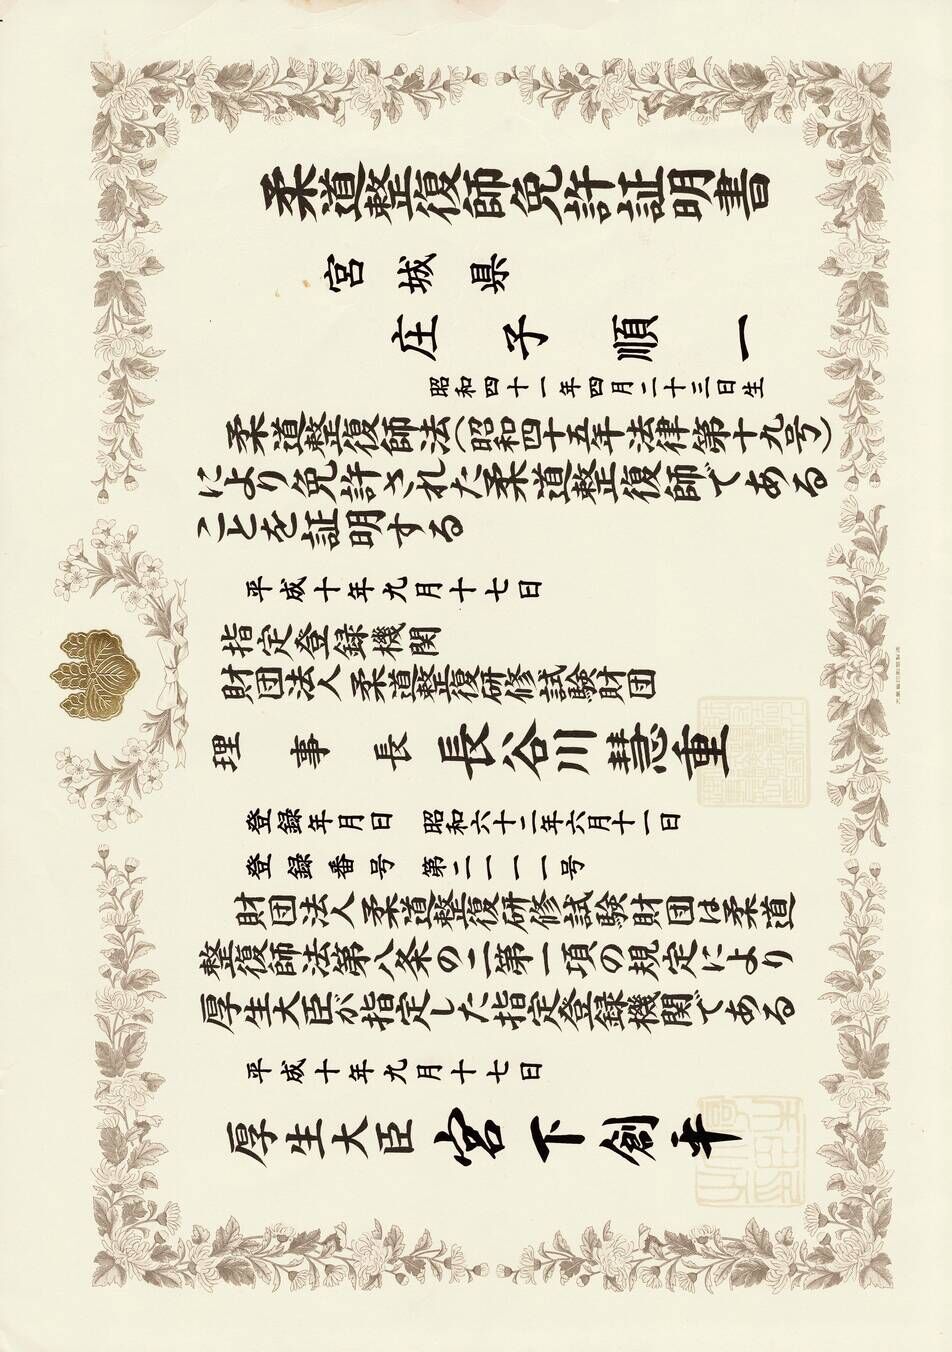 柔道整復師免許証明書
宮城県
庄子順一
昭和四十一年四月二十三日生
柔道整復師法(昭和四十五年法律第十九号)
により免許された柔道整復師である
ことを証明する
平成十年九月十七日
指定登録機関
財団法人柔道整復研修試験財団
理事長 長谷川慧重
登録年月日 昭和六十二年六月十一日
登録番号 第二一一一号
財団法人柔道整復研修試験財団は柔道
整復師法第八条の二第一項の規定により
厚生大臣が指定した指定登録機関である
平成十年九月十七日
厚生大臣 宮下創平